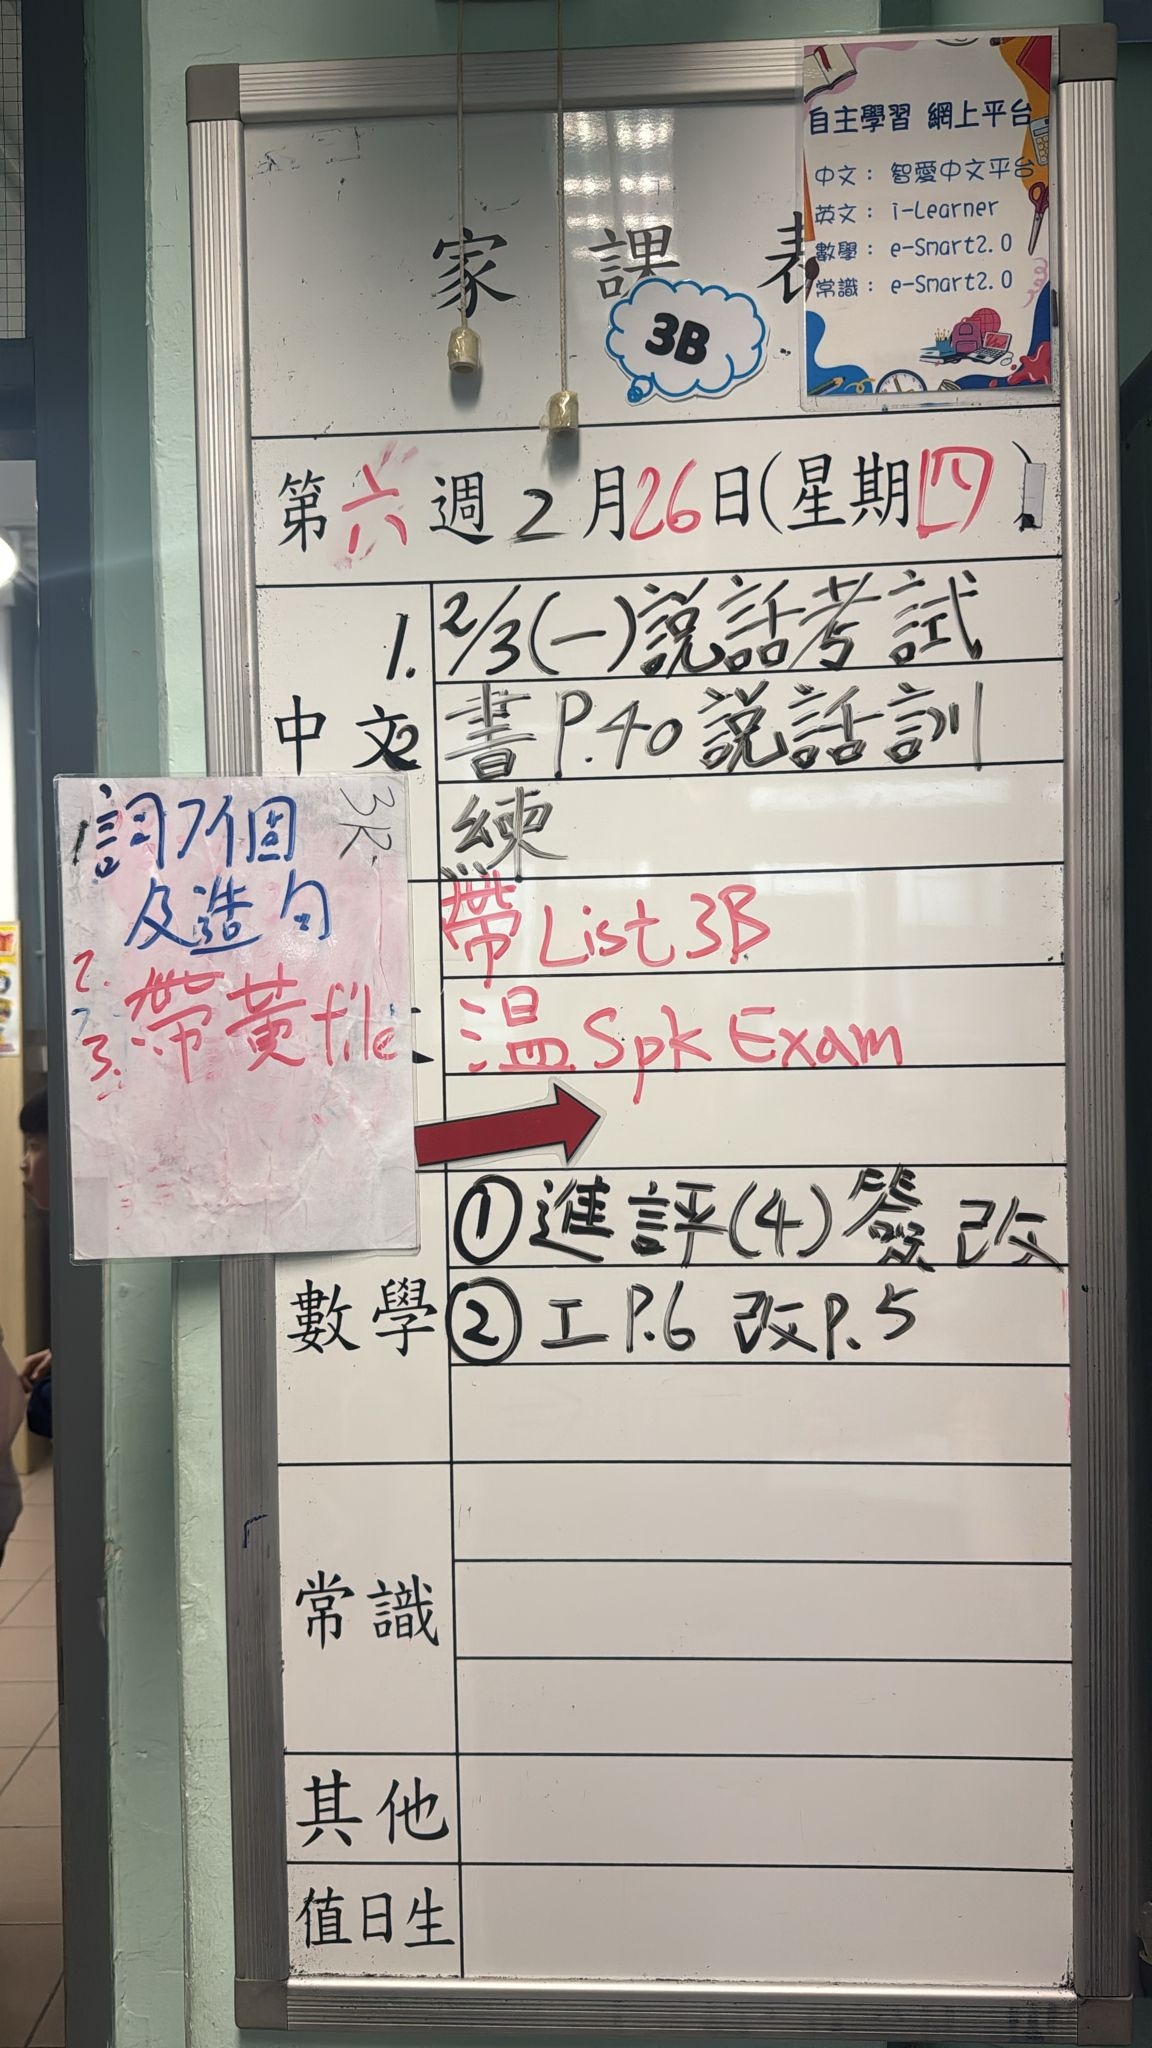 自主學習 網上平台
中文： 智愛中文平台
英文： i-Learner
數學： e-Smart2.0
常識： e-Smart2.0
家課表
3B
第六週2月26日(星期四)
中文
1. 2/3(一)說話考試
2 書P.40說話訓
練
3R
1 詞7個
及造句
2.
3. 帶黃file
帶List 3B
溫Spk Exam
數學
①進評(4)簽改
②工P.6 改P.5
常識
其他
值日生